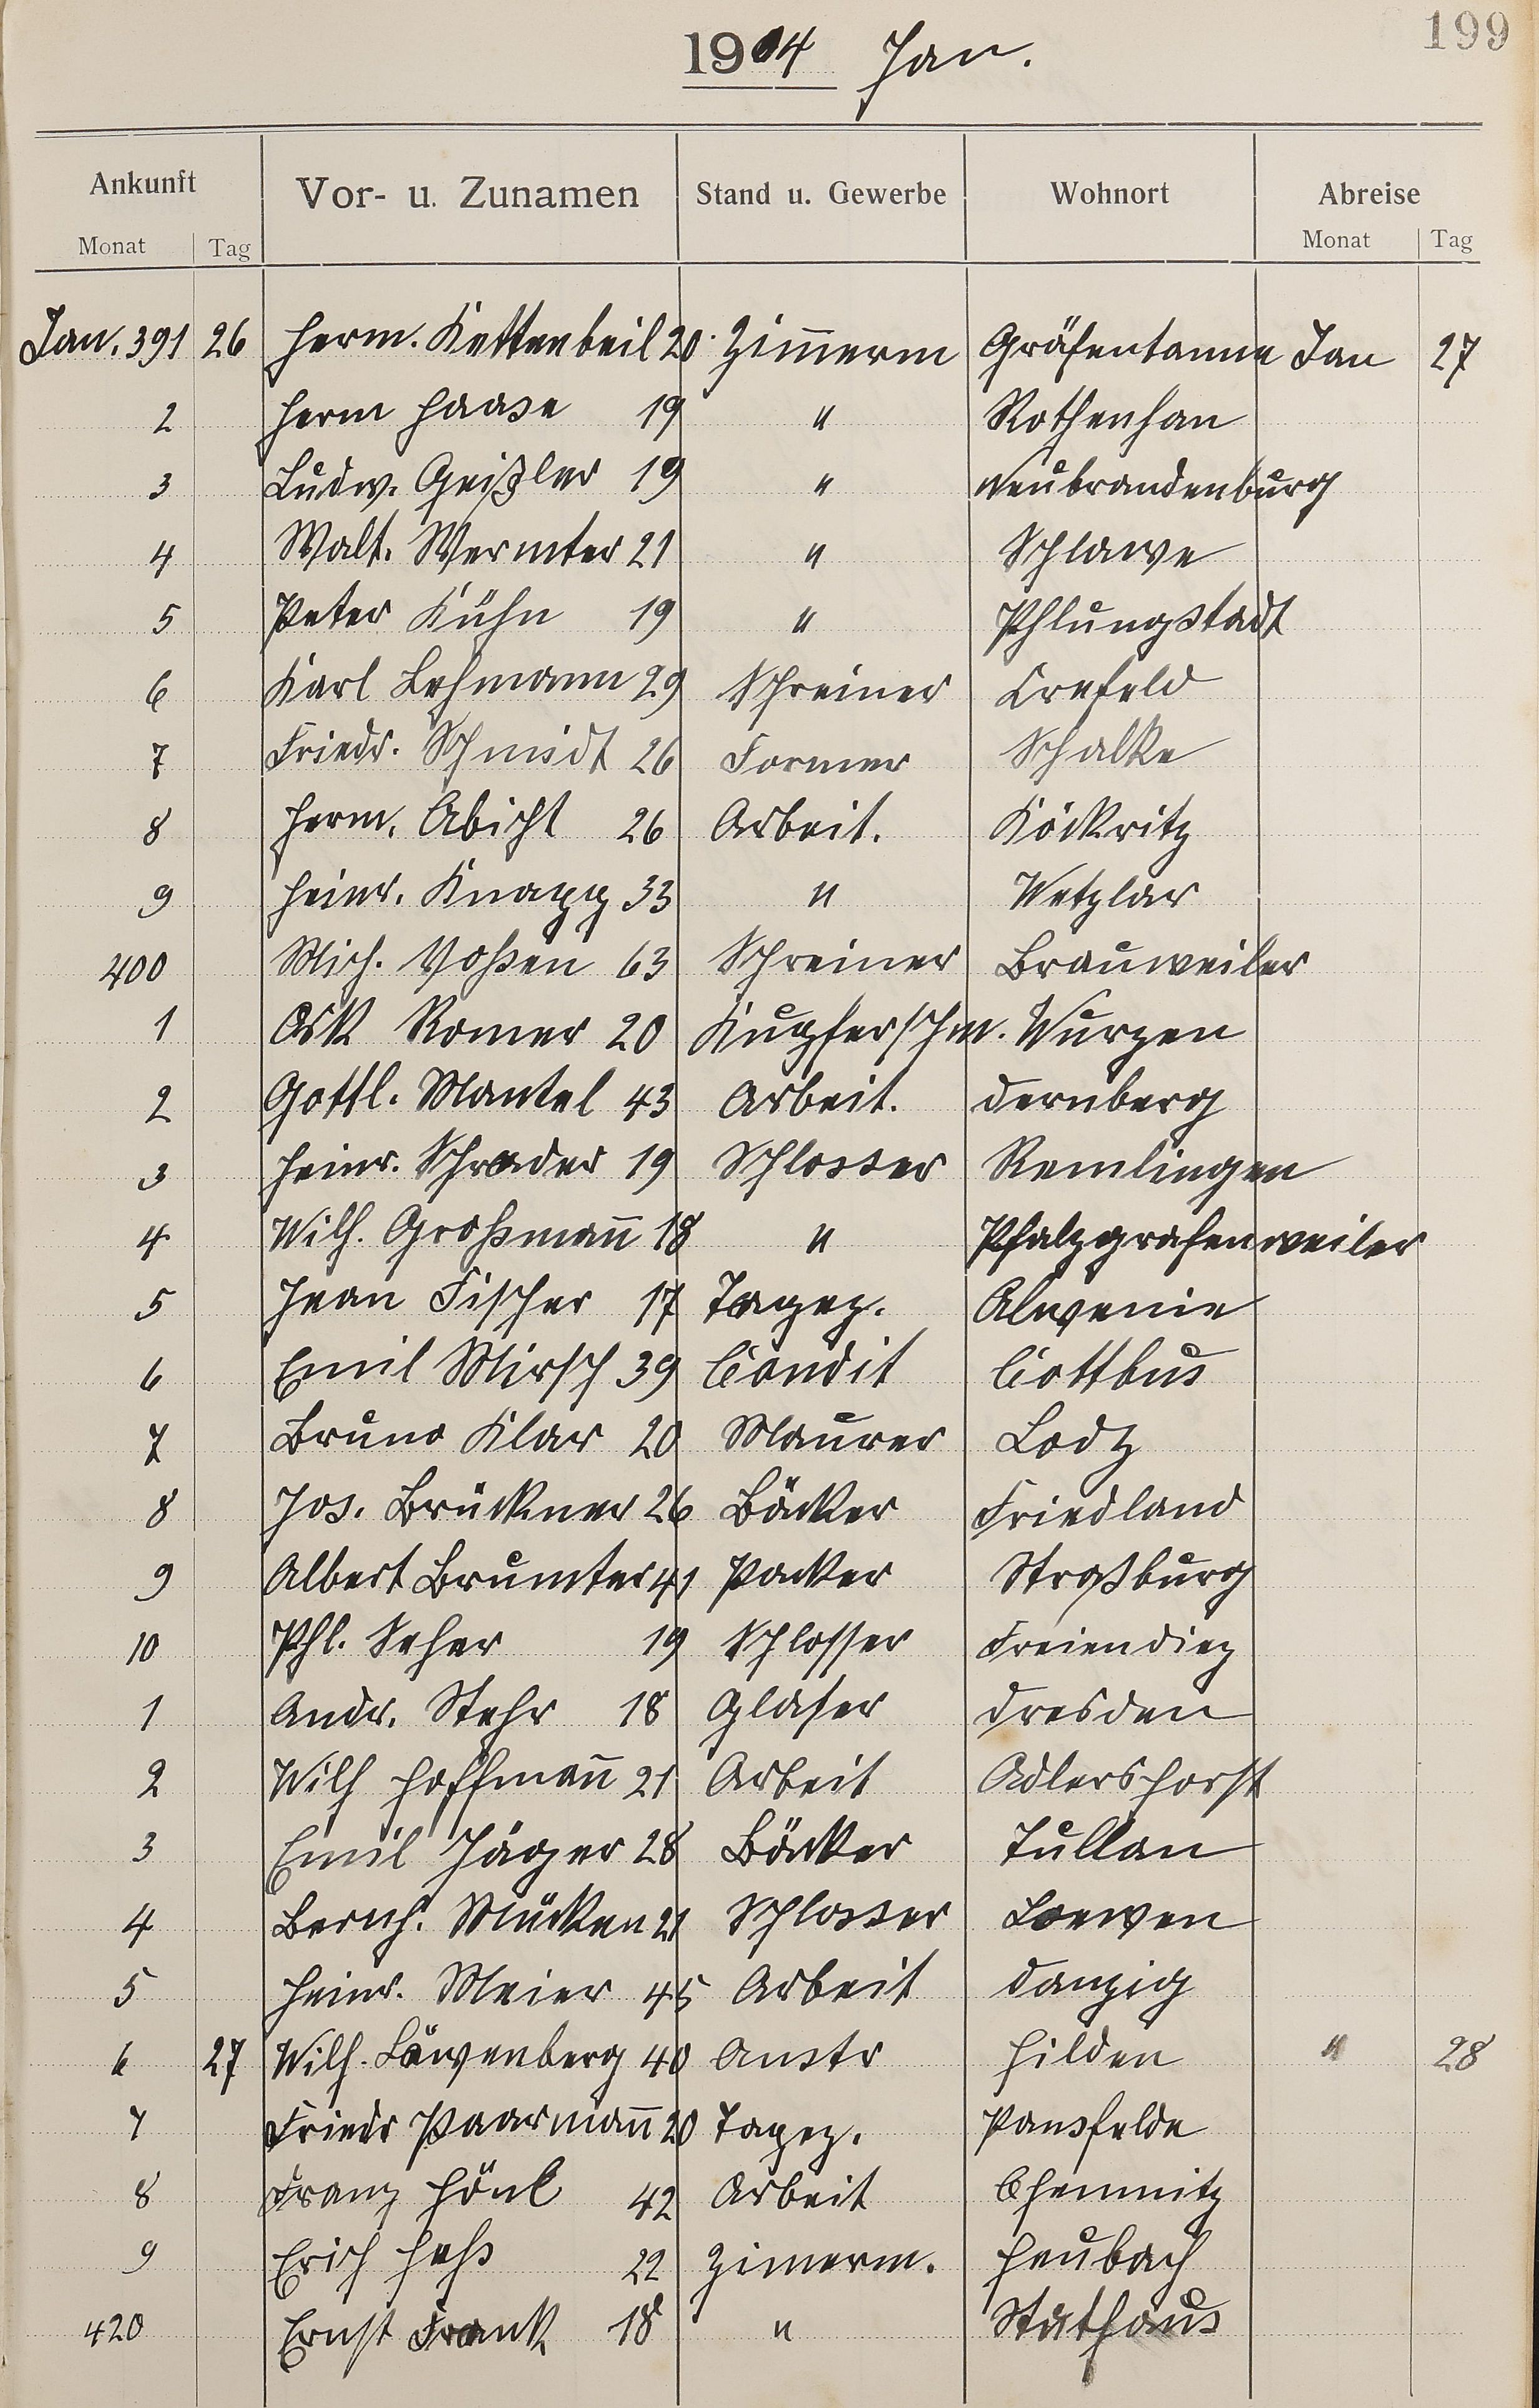 199
1904 Jan.
Ankunft Vor- u. Zunamen Stand u. Gewerbe Wohnort Abreise
Monat Tag Monat Tag
Jan. 391 26 Herm. Kettenbeil 20. Zim̅erm Gräfentanna Jan 27
2 Herm Haase 19 " Rothenhan
3 Ludw. Geißler 19 " Neubrandenburg
4 Walt. Wermter 21 " Schlawe
5 Peter Kühn 19 " Phlungstadt
6 Karl Lehmann 29 Schreiner Crefeld
7 Friedr. Schmidt 26 Former Schalke
8 Herm. Abicht 26 Arbeit. Köckritz
9 Heinr. Knapp 33 " Wetzlar
400 Mich. Voßen 63 Schreiner Brauweiler
1 Osk Romer 20 Kupferschm. Wurzen
2 Gottl. Mantel 43 Arbeit. Dernberg
3 Heinr. Schrader 19 Schlosser Remlingen
4 Wilh. Großman̅ 18 " Pfalzgrafenweiler
5 Jean Fischer 17 Tapez. Alvenie
6 Emil Mirsch 39 Condit Cottbus
7 Bruno Klar 20 Maurer Lodz
8 Jos. Brückner 26 Bäcker Friedland
9 Albert Brumter 41 Packer Straßburg
10 Phl. Seher 19 Schlosser Freiendiez
1 Andr. Stehr 18 Glaser Dresden
2 Wilh Hoffman̅ 21 Arbeit Adlershorst
3 Emil Jäger 28 Bäcker Tullan
4 Bernh. Mücken 21 Schlosser Loewen
5 Heinr. Meier 45 Arbeit Danzig
6 27 Wilh. Löwenberg 40 Anstr Hilden " 28
7 Friedr Paarman̅ 20 Tapez. Pansfelde
8 Franz Hönl 42 Arbeit Chemnitz
9 Erich Heß 22 Zimerm. Heubach
420 Ernst Frank 18 "